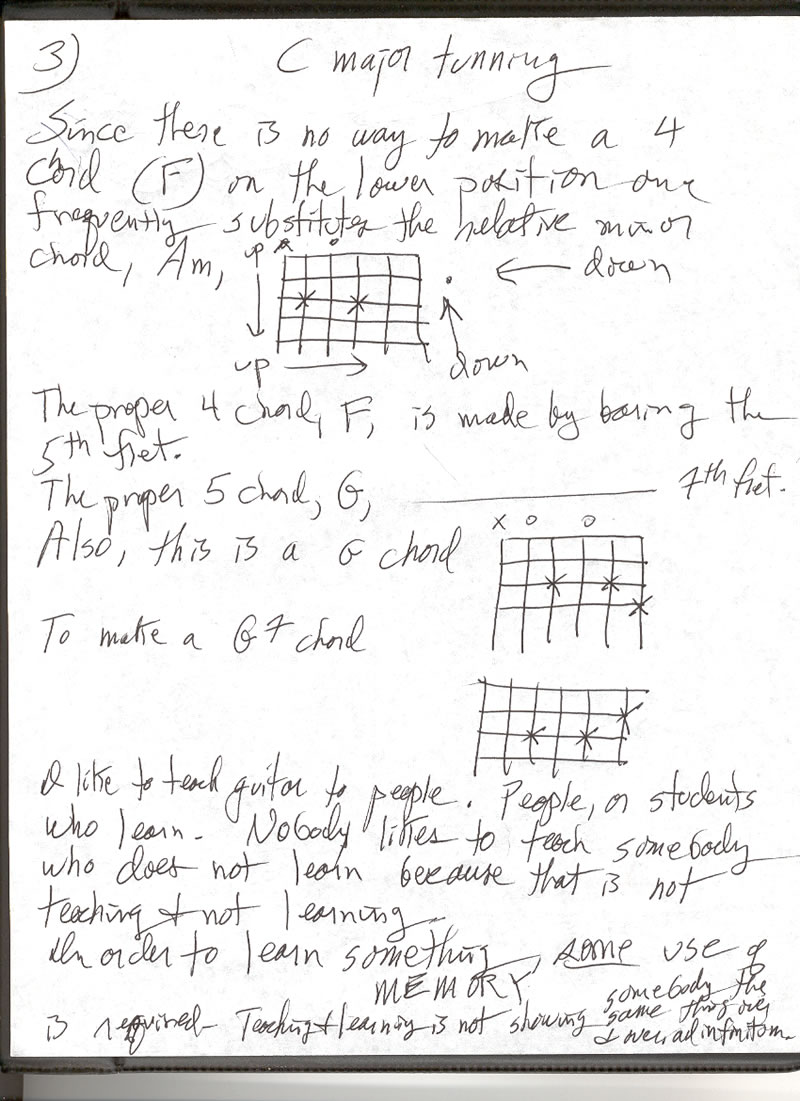 3) C major tunning
Since there is no way to make a 4
chord (F) on the lower position one
frequently substitutes the relative minor
chord, Am,
up x o
← down
up → down
The proper 4 chord, F, is made by baring the
5th fret.
The proper 5 chord, G, ——— 7th fret.
Also, this is a G chord
x o o
To make a G7 chord
I like to teach guitar to people. People, or students
who learn. Nobody likes to teach somebody
who does not learn because that is not
teaching & not learning.
In order to learn something, some use of
MEMORY
is required - Teaching & learning is not showing somebody the
same thing over
& over, ad infinitom.